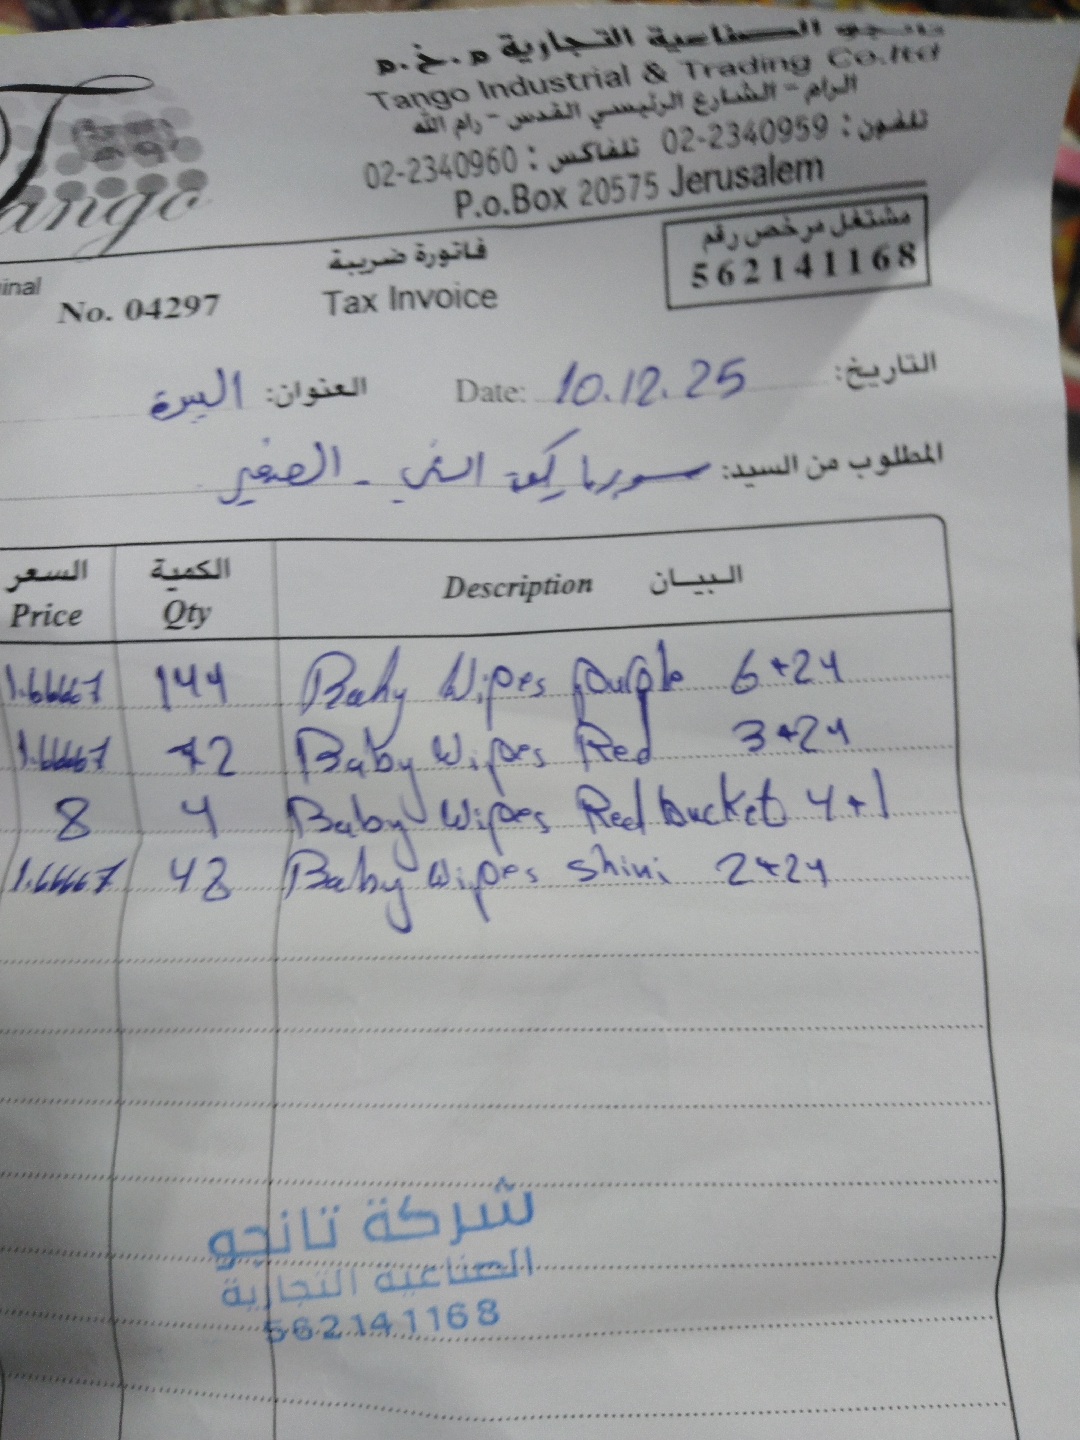 تانجو الصناعية التجارية م.خ.م
Tango Industrial & Trading Co.ltd
الرام - الشارع الرئيسي القدس - رام الله
تلفون : 02-2340959 تلفاكس : 02-2340960
P.o.Box 20575 Jerusalem
Tango
مشتغل مرخص رقم
562141168
فاتورة ضريبة
Tax Invoice
inal
No. 04297
التاريخ: Date: 10.12.25
العنوان: البيرة
المطلوب من السيد: - الصغير
البيان Description الكمية Qty السعر Price
Baby Wipes purple 6+24 144 1.66667
Baby Wipes Red 3+24 72 1.66667
Baby Wipes Red bucket 4+1 4 8
Baby Wipes Shini 2+24 48 1.66667
شركة تانجو
الصناعية التجارية
562141168